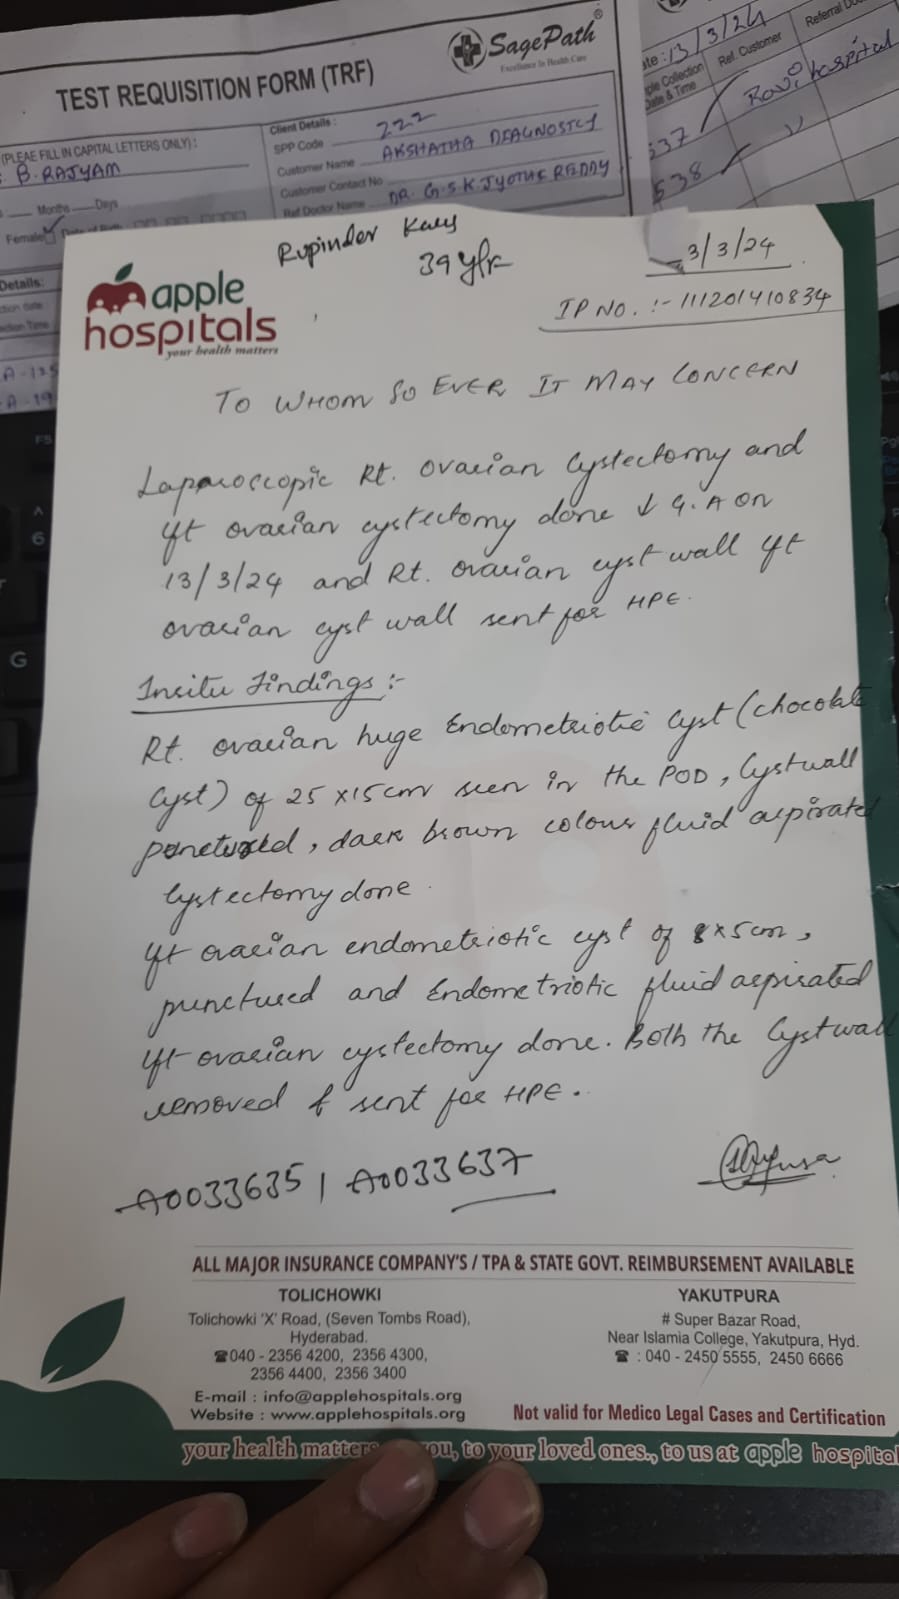 TEST REQUISITION FORM (TRF)
SagePath®
Excellence In Health Care
(PLEAE FILL IN CAPITAL LETTERS ONLY) :
B. RAJYAM
Months Days
Female
Details:
Client Details :
SPP Code 222
Customer Name AKSHATHA DIAGNOSTCS
Customer Contact No
Ref Doctor Name DR. G.S.K. JYOTHI REDDY
ate : 13/3/24
ple Collection Date & Time
Ref. Customer
Referral Do
537 Ravi hospital
538 "
Rupinder Kaur
39 y/F
3/3/24
IP NO. :- 111201410834
apple
hospitals
your health matters
TO WHOM SO EVER IT MAY CONCERN
Laparoscopic Rt. ovarian Cystectomy and
lft ovarian cystectomy done ↓ G.A on
13/3/24 and Rt. ovarian cyst wall lft
ovarian cyst wall sent for HPE.
Insitu Findings :-
Rt. ovarian huge Endometriotic Cyst (chocolate
Cyst) of 25 x15cm seen in the POD, Cystwall
punctured, dark brown colour fluid aspirated
Cystectomy done.
lft ovarian endometriotic cyst of 8x5cm,
punctured and Endometriotic fluid aspirated
lft ovarian cystectomy done. Both the Cystwall
removed & sent for HPE.
A0033635 / A0033637
ALL MAJOR INSURANCE COMPANY'S / TPA & STATE GOVT. REIMBURSEMENT AVAILABLE
TOLICHOWKI
Tolichowki 'X' Road, (Seven Tombs Road),
Hyderabad.
☎040 - 2356 4200, 2356 4300,
2356 4400, 2356 3400
E-mail : info@applehospitals.org
Website : www.applehospitals.org
YAKUTPURA
# Super Bazar Road,
Near Islamia College, Yakutpura, Hyd.
☎ : 040 - 2450 5555, 2450 6666
Not valid for Medico Legal Cases and Certification
your health matters you, to your loved ones., to us at apple hospital